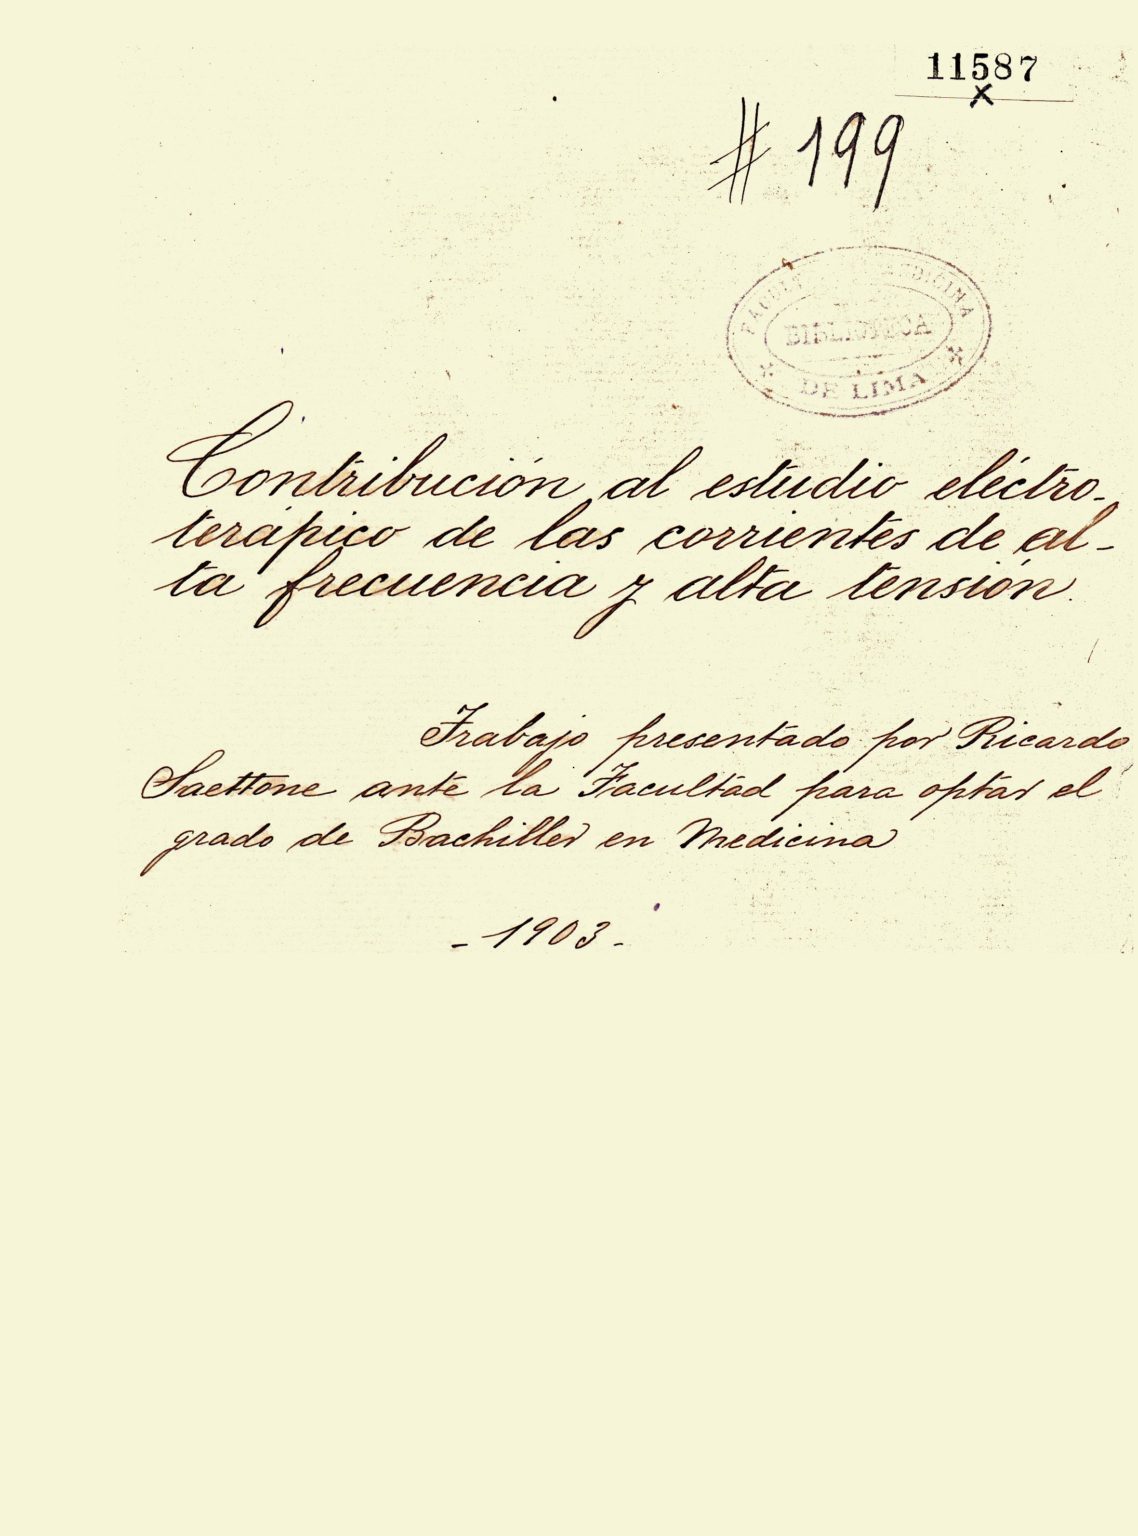 11587
# 199
FACULT MEDICINA
BIBLIOTECA
DE LIMA
Contribución al estudio eléctro-
terápico de las corrientes de al-
ta frecuencia y alta tensión.
Trabajo presentado por Ricardo
Saettone ante la Facultad para optar el
grado de Bachiller en Medicina
- 1903 -